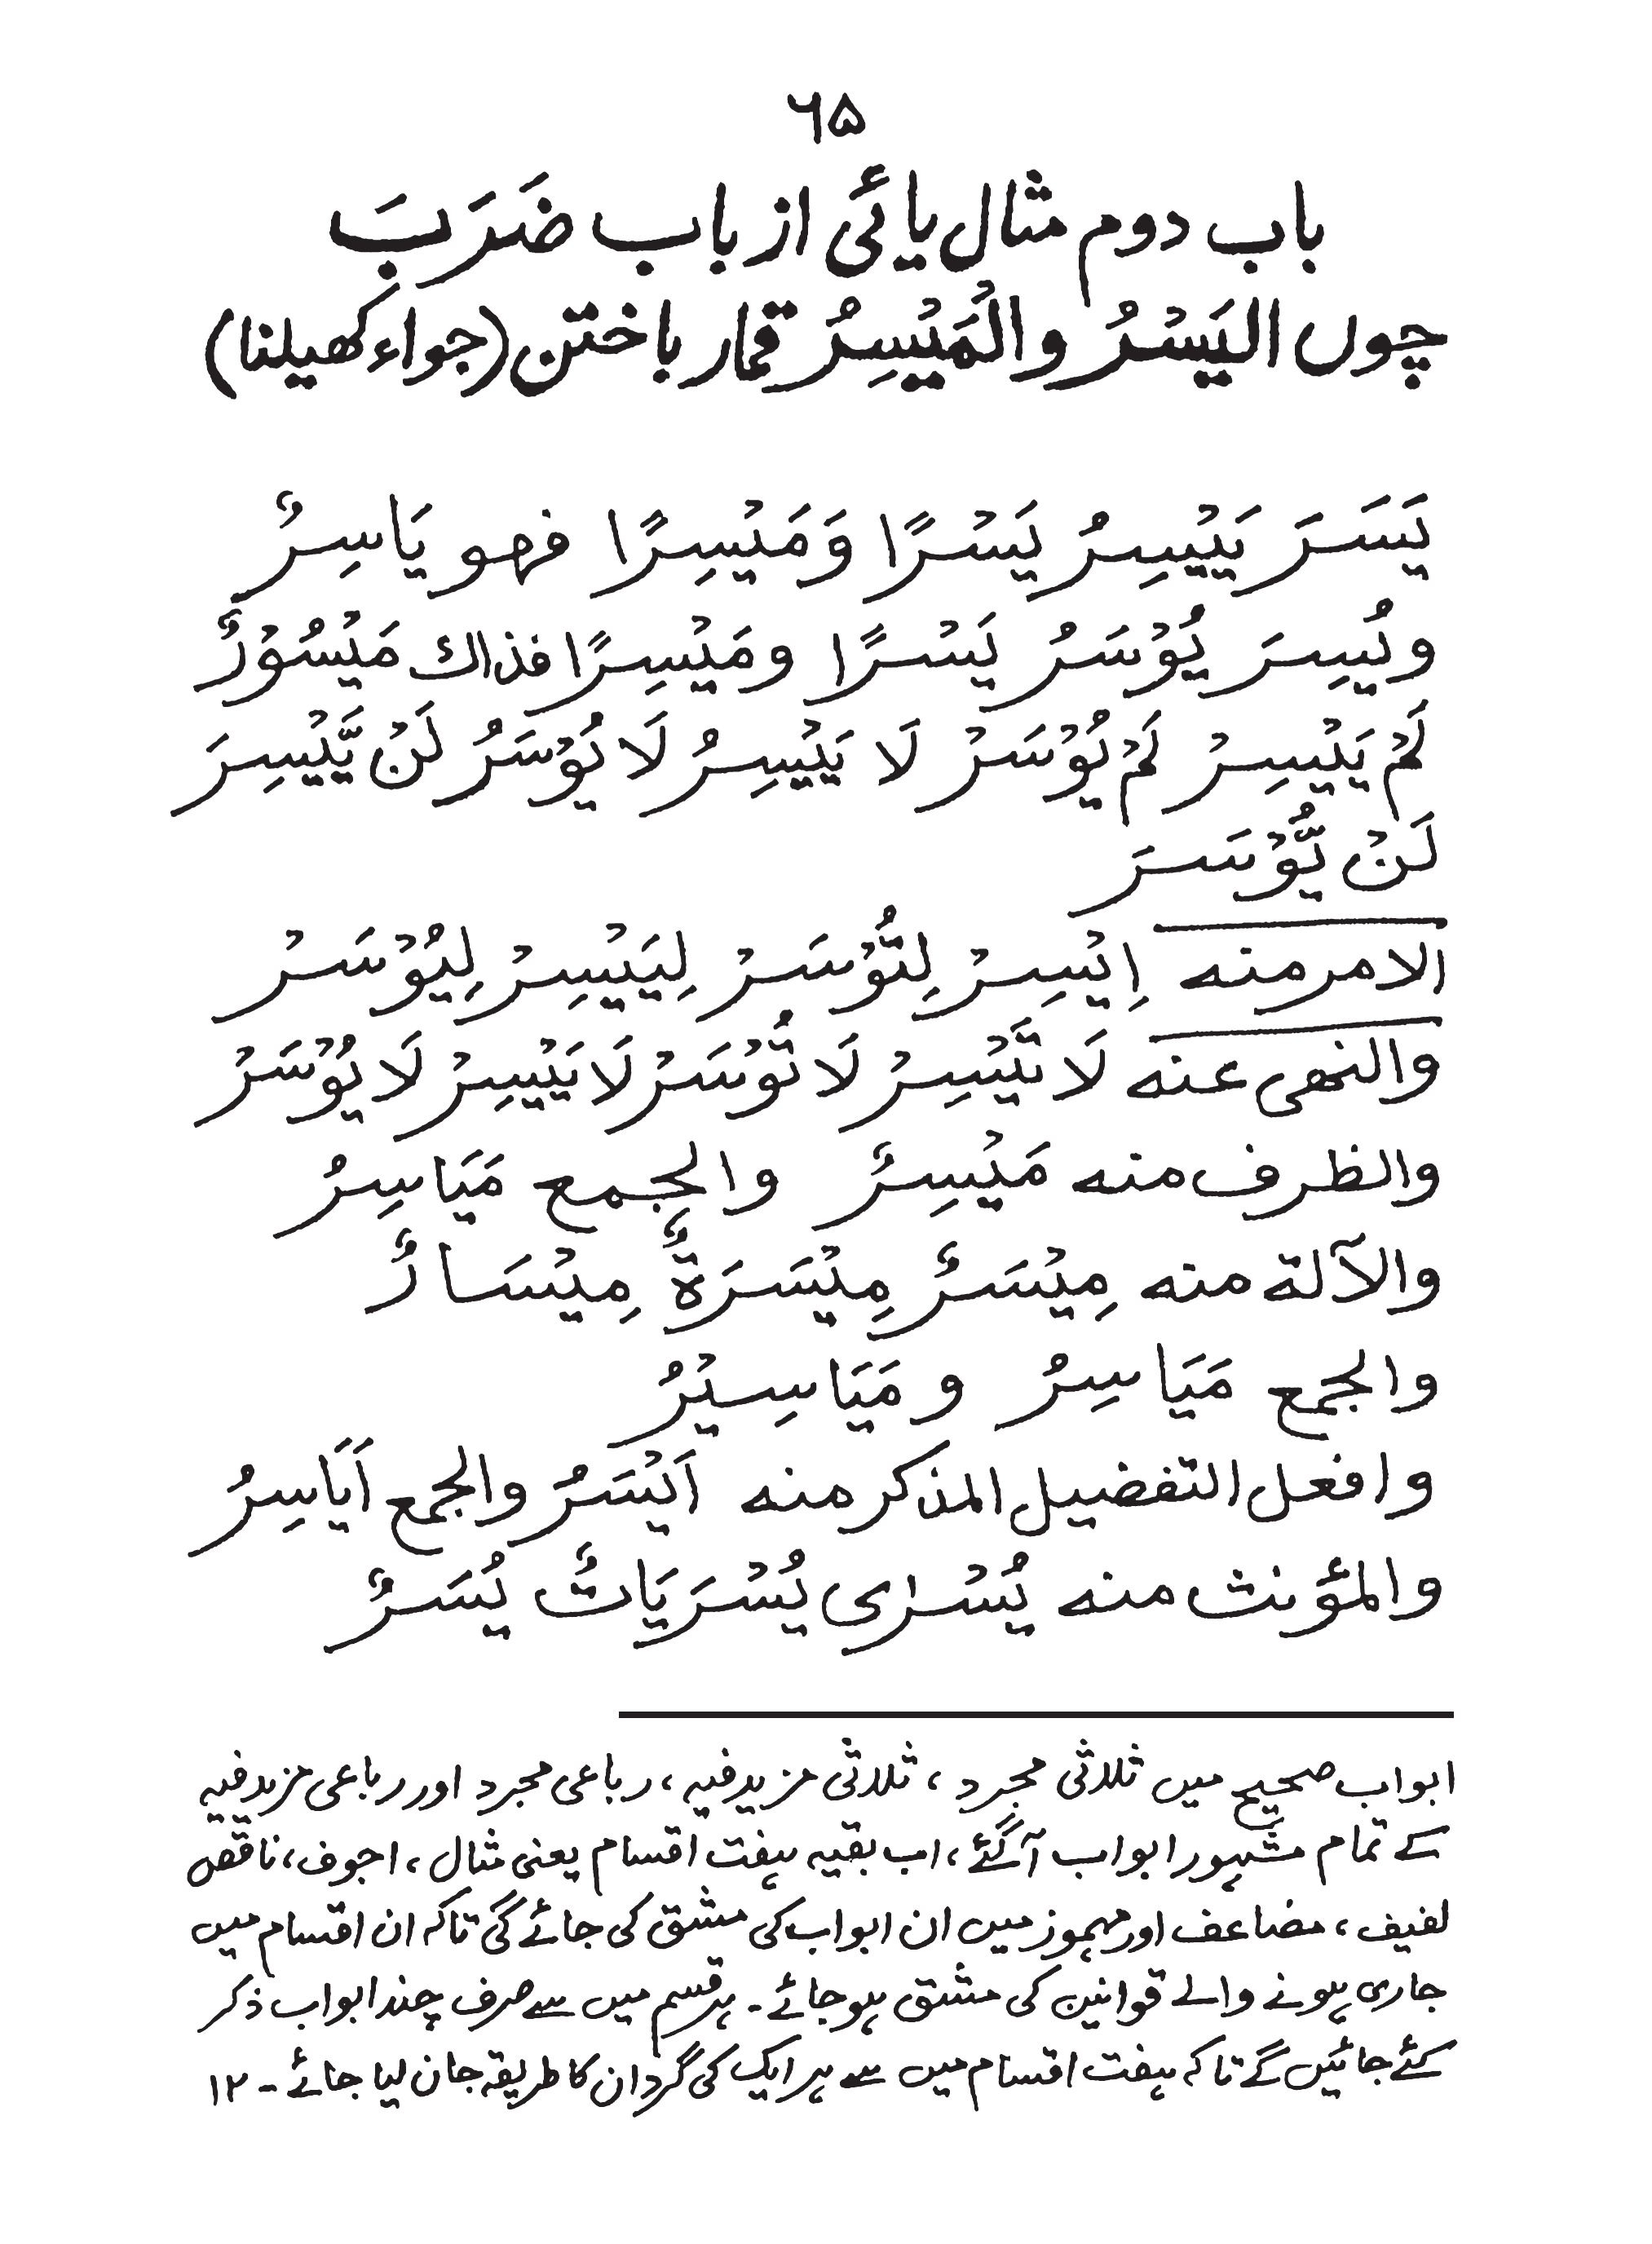 ۶۵
باب دوم مثال یائی از باب ضَرَبَ
چوں الیَسْرُ والْمَیْسِرُ قمار باختن (جواء کھیلنا)
یَسَرَ یَیْسِرُ یَسْرًا وَمَیْسِرًا فهو یَاسِرٌ
ویُسِرَ یُوْسَرُ یَسْرًا ومَیْسِرًا فذاك مَیْسُوْرٌ
لَمْ یَیْسِرْ لَمْ یُوْسَرْ لَا یَیْسِرُ لَا یُوْسَرُ لَنْ یَّیْسِرَ
لَنْ یُّوْسَرَ
الامر منه اِیْسِرْ لِتُوْسَرْ لِیَیْسِرْ لِیُوْسَرْ
والنهی عنه لَا تَیْسِرْ لَا تُوْسَرْ لَا یَیْسِرْ لَا یُوْسَرْ
والظرف منه مَیْسِرٌ والجمع مَیَاسِرُ
والآلة منه مِیْسَرٌ مِیْسَرَةٌ مِیْسَارٌ
والجمع مَیَاسِرُ و مَیَاسِیْرُ
وافعل التفضیل المذکر منه اَیْسَرُ والجمع اَیَاسِرُ
والمؤنث منه یُسْرٰی یُسْرَیَاتٌ یُسَرٌ
ابواب صحیح میں ثلاثی مجرد ، ثلاثی مزید فیہ ، رباعی مجرد اور رباعی مزید فیہ
کے تمام مشہور ابواب آ گئے ، اب بقیہ ہفت اقسام یعنی مثال ، اجوف ، ناقص
لفیف ، مضاعف اور مہموز میں ان ابواب کی مشق کی جائے گی تاکہ ان اقسام میں
جاری ہونے والے قوانین کی مشق ہو جائے ۔ ہر قسم میں سے صرف چند ابواب ذکر
کئے جائیں گے تاکہ ہفت اقسام میں سے ہر ایک کی گردان کا طریقہ جان لیا جائے ۔ ۱۲